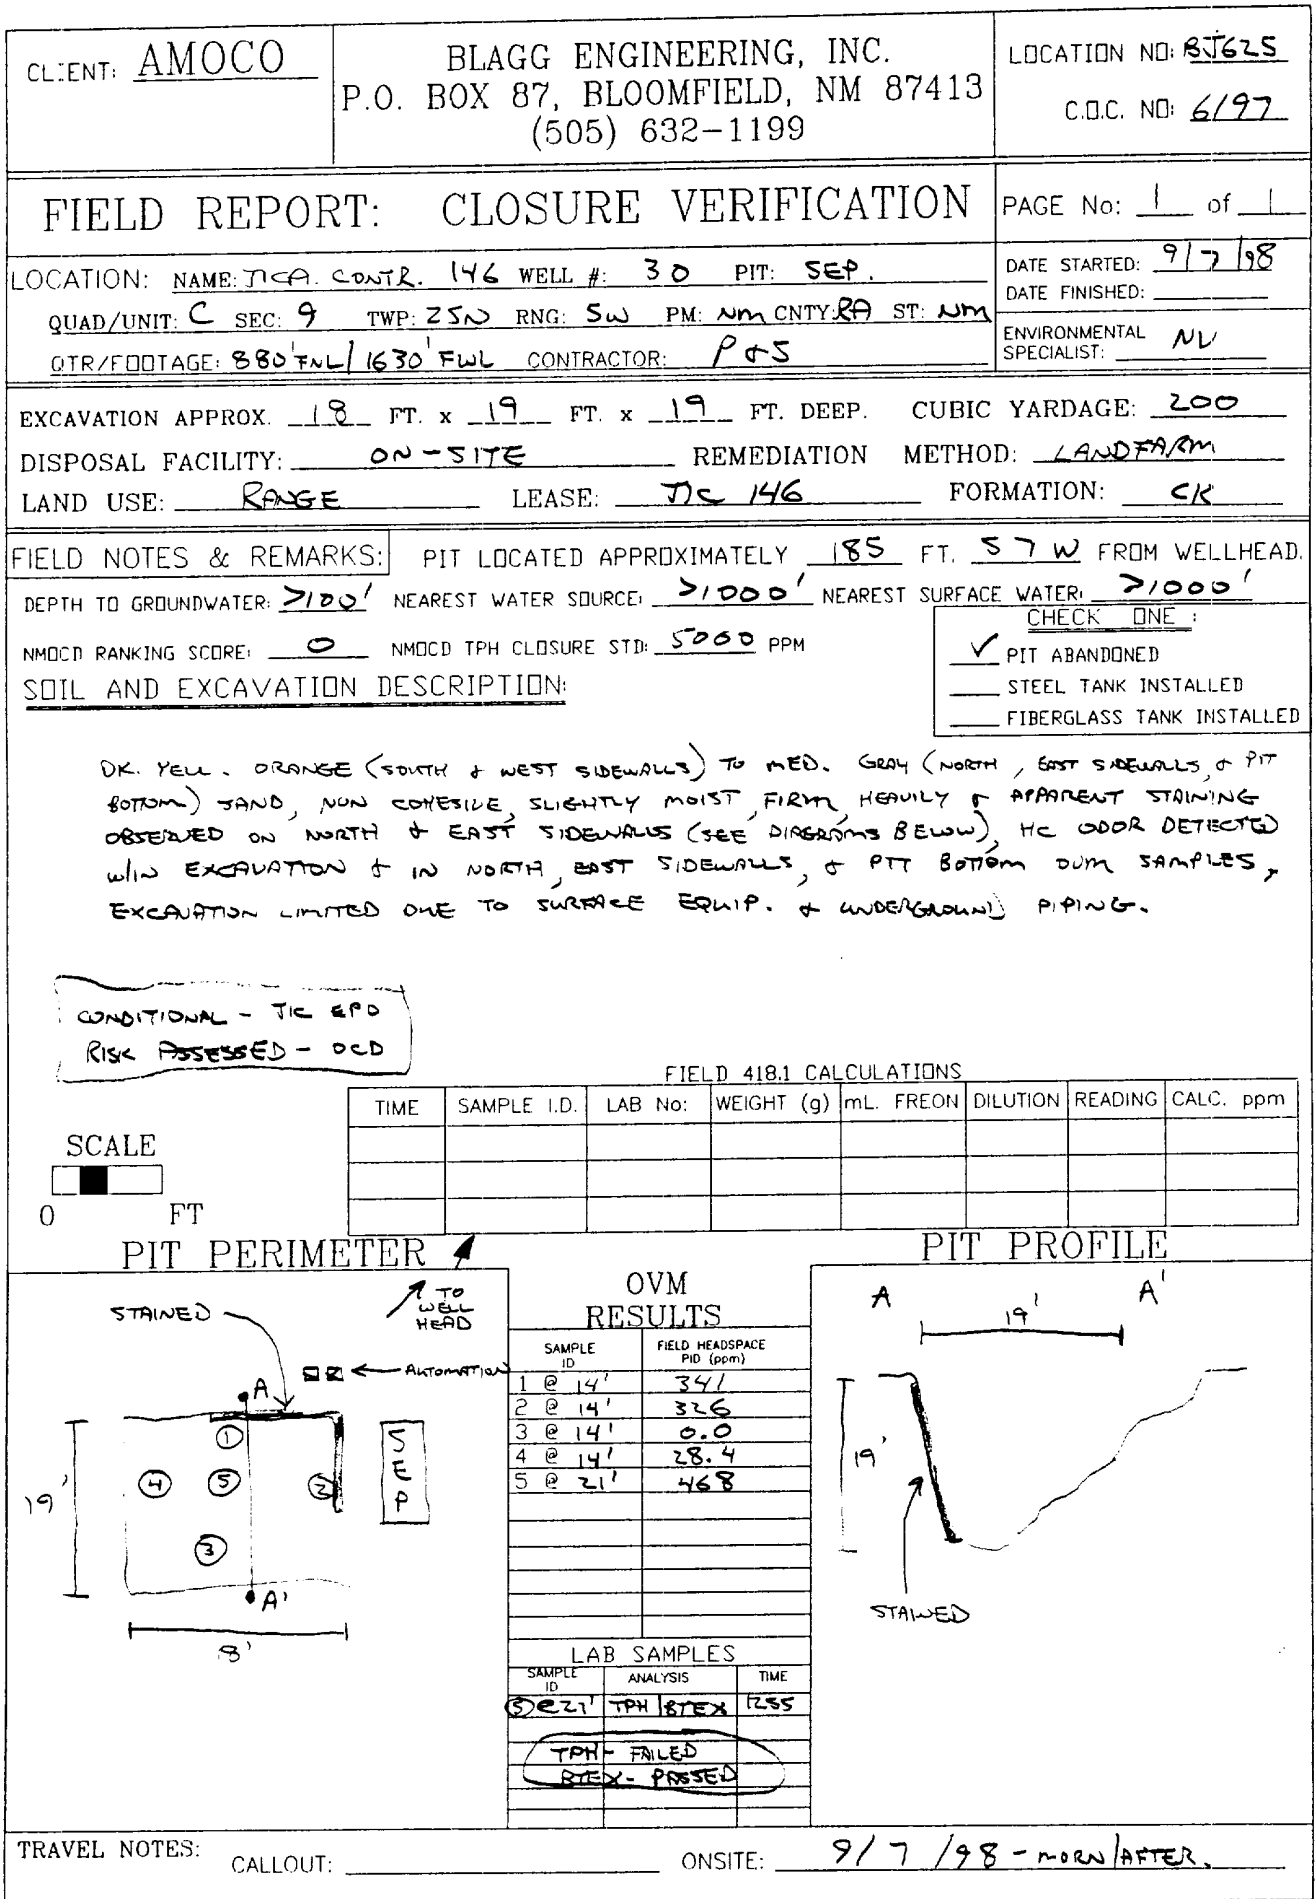 CLIENT: AMOCO
BLAGG ENGINEERING, INC.
P.O. BOX 87, BLOOMFIELD, NM 87413
(505) 632-1199
LOCATION NO: BJ625
C.O.C. NO: 6197
FIELD REPORT: CLOSURE VERIFICATION
PAGE No: 1 of 1
LOCATION: NAME: JICA. CONTR. 146 WELL #: 30 PIT: SEP.
QUAD/UNIT: C SEC: 9 TWP: 25N RNG: 5W PM: NM CNTY: RA ST: NM
QTR/FOOTAGE: 880'FNL/1630'FWL CONTRACTOR: P&S
DATE STARTED: 9/7/98
DATE FINISHED:
ENVIRONMENTAL SPECIALIST: NV
EXCAVATION APPROX. 18 FT. x 19 FT. x 19 FT. DEEP. CUBIC YARDAGE: 200
DISPOSAL FACILITY: ON-SITE REMEDIATION METHOD: LANDFARM
LAND USE: RANGE LEASE: JIC 146 FORMATION: CK
FIELD NOTES & REMARKS: PIT LOCATED APPROXIMATELY 185 FT. S7W FROM WELLHEAD.
DEPTH TO GROUNDWATER: >100' NEAREST WATER SOURCE: >1000' NEAREST SURFACE WATER: >1000'
NMOCD RANKING SCORE: 0 NMOCD TPH CLOSURE STD: 5000 PPM
CHECK ONE :
✓ PIT ABANDONED
STEEL TANK INSTALLED
FIBERGLASS TANK INSTALLED
SOIL AND EXCAVATION DESCRIPTION:
DK. YELL. ORANGE (SOUTH & WEST SIDEWALLS) TO MED. GRAY (NORTH, EAST SIDEWALLS, & PIT
BOTTOM) SAND, NON COHESIVE, SLIGHTLY MOIST, FIRM, HEAVILY & APPARENT STAINING
OBSERVED ON NORTH & EAST SIDEWALLS (SEE DIAGRAMS BELOW), HC ODOR DETECTED
W/IN EXCAVATION & IN NORTH, EAST SIDEWALLS, & PIT BOTTOM OVM SAMPLES,
EXCAVATION LIMITED DUE TO SURFACE EQUIP. & UNDERGROUND PIPING.
CONDITIONAL - JIC EPD
RISK ASSESSED - OCD
FIELD 418.1 CALCULATIONS
TIME SAMPLE I.D. LAB No: WEIGHT (g) mL. FREON DILUTION READING CALC. ppm
SCALE
0 FT
PIT PERIMETER
TO
WELL
HEAD
STAINED
AUTOMATION
A
1
4
5
2
3
SEP
19'
A'
18'
OVM
RESULTS
SAMPLE ID FIELD HEADSPACE PID (ppm)
1 @ 14' 341
2 @ 14' 326
3 @ 14' 0.0
4 @ 14' 28.4
5 @ 21' 468
LAB SAMPLES
SAMPLE ID ANALYSIS TIME
5@21' TPH/BTEX 1255
TPH - FAILED
BTEX - PASSED
PIT PROFILE
A A'
19'
19'
STAINED
TRAVEL NOTES: CALLOUT: ONSITE: 9/7/98 - MORN/AFTER.